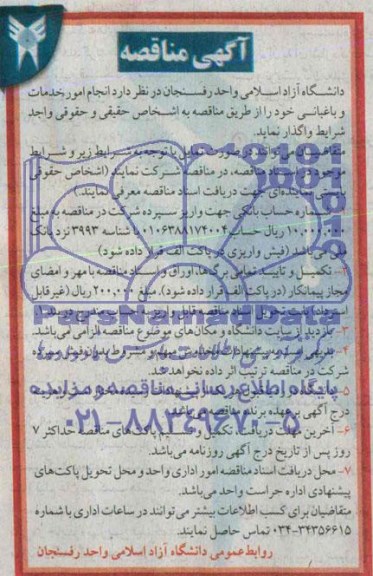 آگهی مناقصه
دانشگاه آزاد اسلامی واحد رفسنجان در نظر دارد انجام امور خدمات
و باغبانی خود را از طریق مناقصه به اشخاص حقیقی و حقوقی واجد
شرایط واگذار نماید.
متقاضیان می‌توانند در صورت تمایل با توجه به شرایط زیر و شرایط
موجود در اسناد مناقصه، در مناقصه شرکت نمایند (اشخاص حقوقی
بایستی نماینده‌ای جهت دریافت اسناد مناقصه معرفی نمایند.)
شماره حساب بانکی جهت واریز سپرده شرکت در مناقصه به مبلغ
۱۰,۰۰۰,۰۰۰ ریال حساب ۰۱۰۶۳۸۸۱۷۴۰۰۴ با شناسه ۳۹۹۳ نزد بانک
ملی می‌باشد (فیش واریزی در پاکت الف قرار داده شود)
۲- تکمیل و تایید تمامی برگ‌ها، اوراق و اسناد مناقصه با مهر و امضای
مجاز پیمانکار (در پاکت الف قرار داده شود). مبلغ ۲۰۰,۰۰۰ ریال (غیر قابل
ParsNamadData
۳- بازدید از سایت دانشگاه و مکان‌های موضوع مناقصه الزامی می‌باشد.
۴- به پیشنهادات مبهم و مشروط بدون سپرده
شرکت در مناقصه ترتیب اثر داده نخواهد شد.
پایگاه اطلاع رسانی مناقصه و مزایده
۵- دانشگاه در رد یا قبول پیشنهادات
درج آگهی بر عهده برنده مناقصه می‌باشد.
۰۲۱-۸۸۳۴۹۶۷۰-۵
۶- آخرین مهلت دریافت، تکمیل و تسلیم پاکت‌های مناقصه حداکثر ۷
روز پس از تاریخ درج آگهی روزنامه می‌باشد.
۷- محل دریافت اسناد مناقصه امور اداری واحد و محل تحویل پاکت‌های
پیشنهادی اداره حراست واحد می‌باشد.
متقاضیان برای کسب اطلاعات بیشتر می‌توانند در ساعات اداری با شماره
۰۳۴-۳۴۳۵۶۶۱۵ تماس حاصل نمایند.
روابط عمومی دانشگاه آزاد اسلامی واحد رفسنجان